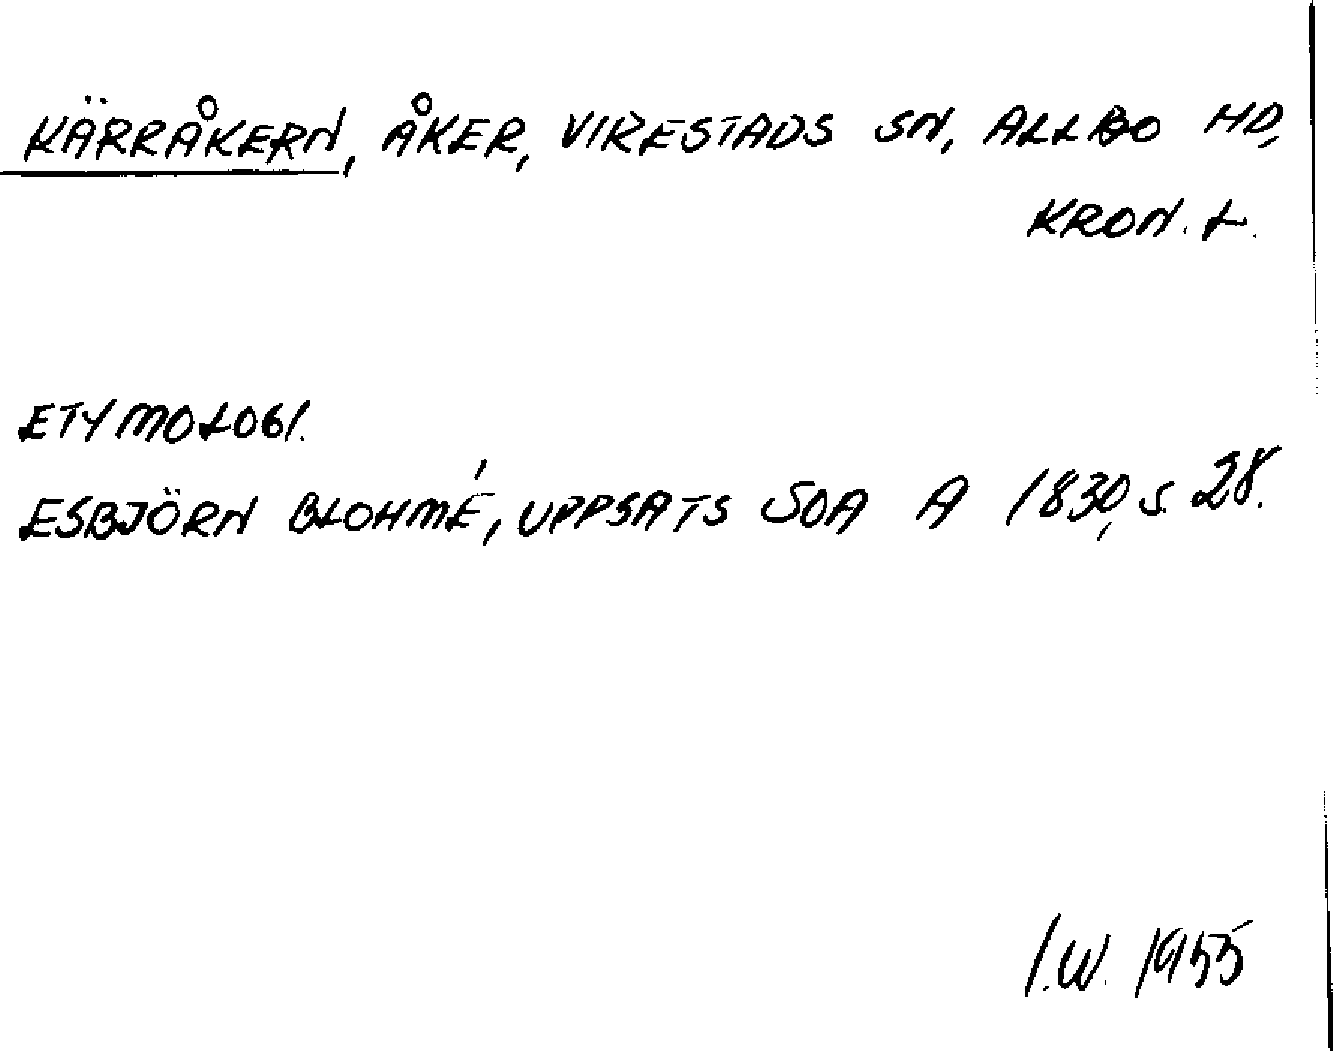 KÄRRÅKERN, ÅKER, VIRESTADS SN, ALLBO HD,
KRON. L.
ETYMOLOGI.
ESBJÖRN BLOHMÉ, UPPSATS SOA A 1830, S. 28.
I.W. 1955